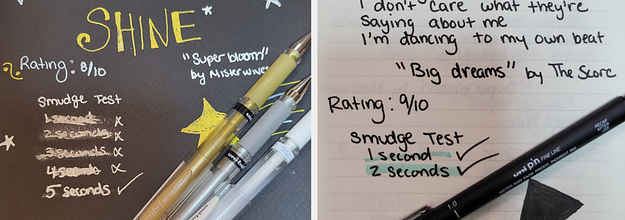 SHINE
Rating: 8/10
"Super bloom"
by Misterwives
Smudge Test
1 second x
2 seconds x
3 seconds x
4 seconds x
5 seconds ✓
I don't care what they're
saying about me
I'm dancing to my own beat
"Big dreams" by The Score
Rating: 9/10
Smudge Test
1 second ✓
2 seconds ✓
uni pin FINE LINE
WATER AND FADE PROOF PIGMENT INK
1.0